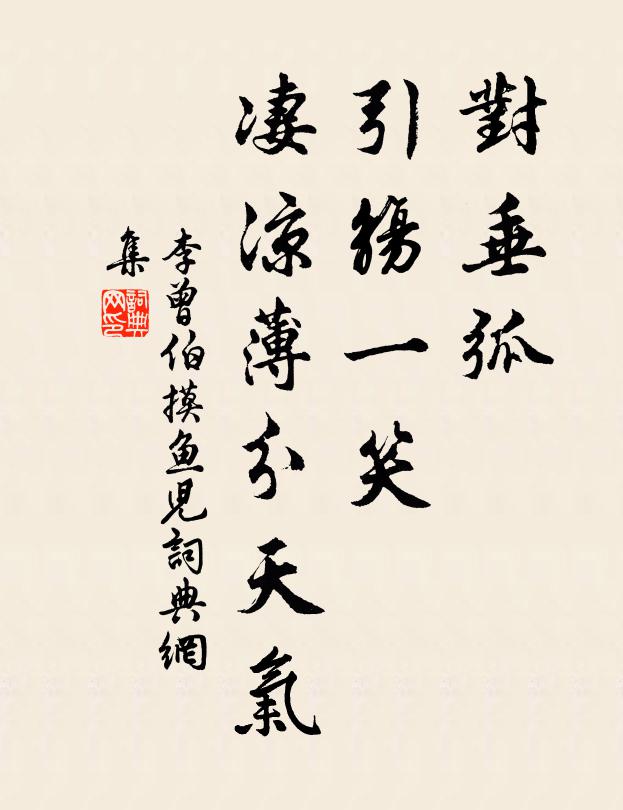 對垂弧
引觴一笑
凄涼薄分天氣
李曾伯摸鱼兒詞典網
集
詞典
网印